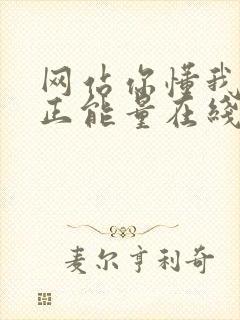 网站你懂我
正能量在线
麦尔亨利奇